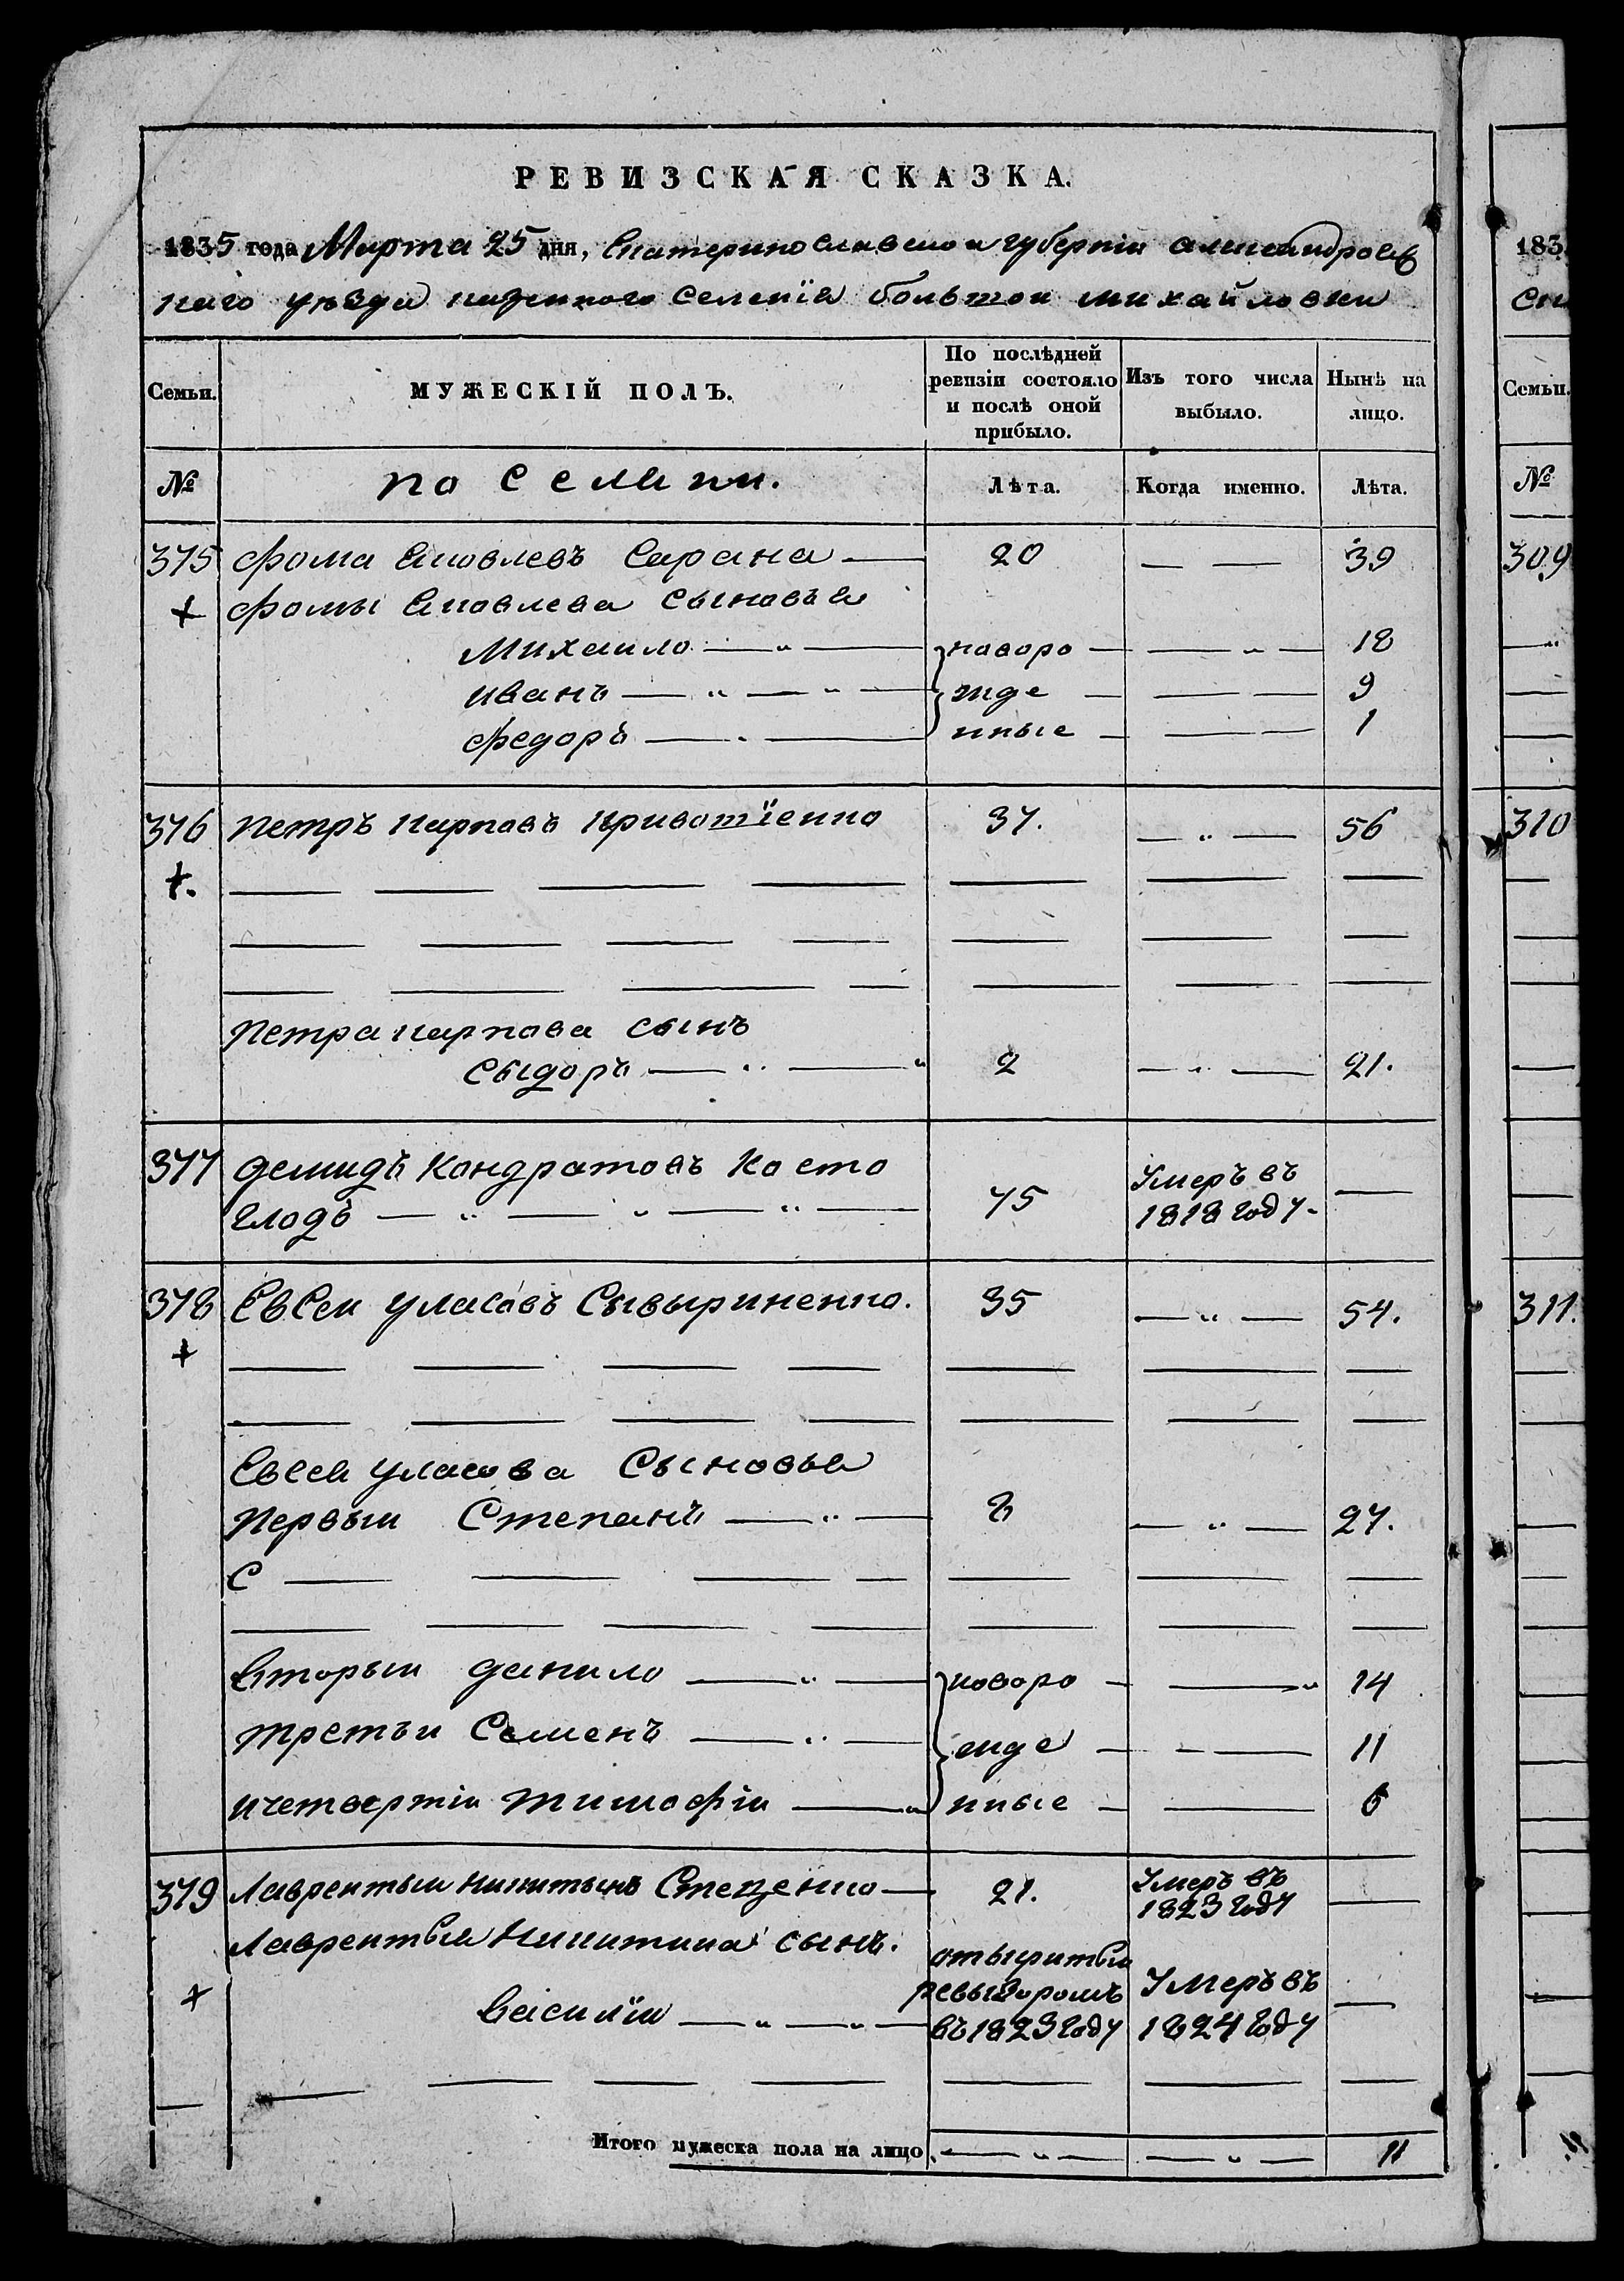 РЕВИЗСКАЯ СКАЗКА.
1835 года Марта 25 дня, Екатеринославскои губернiи александровс
каго уѣзда казенного селенiя большои михайловки
Семьи.
МУЖЕСКІЙ ПОЛЪ.
По послѣдней ревизіи состояло и послѣ оной прибыло.
Изъ того числа выбыло.
Нынѣ на лицо.
№ по семьи. Лѣта. Когда именно. Лѣта.
375 фома Яковлевъ Сарана — 20 — — 39
+ фомы Яковлева сыновья
Михаило — „ — новоро — — „ — 18
иванъ — „ — „ — жде — — — 9
федоръ — „ — нные — — — 1
376 петръ карповъ кривошїенко 37. — „ — 56
+.
петра карпова сынъ
сыдоръ — „ — „ 2 — „ — 21.
377 демидъ кондратовъ косто
глодъ — „ — „ — „ — 75 Умеръ въ 1818 году. —
378 Евсеи уласовъ Сывыриненко. 35 — „ — 54.
+
Евсея уласова Сыновья
первыи Степанъ — „ — 8 — „ — 27.
С
вторыи данило — „ — новоро — — „ 14
третьи Семенъ — „ — жде — — — 11
ичетвертiи тимофiи — „ нные — — 6
379 Лаврентыи никитынъ Стеценко — 21. Умеръ въ 1823 году —
Лаврентыя Никитина сынъ.
+ василїи — „ — „ — отыритыи ревызоромъ въ 1823 году Умеръ въ 1824 году —
Итого мужеска пола на лицо. — „ — — „ — 11
183
309
310
311.
Семьи.
№